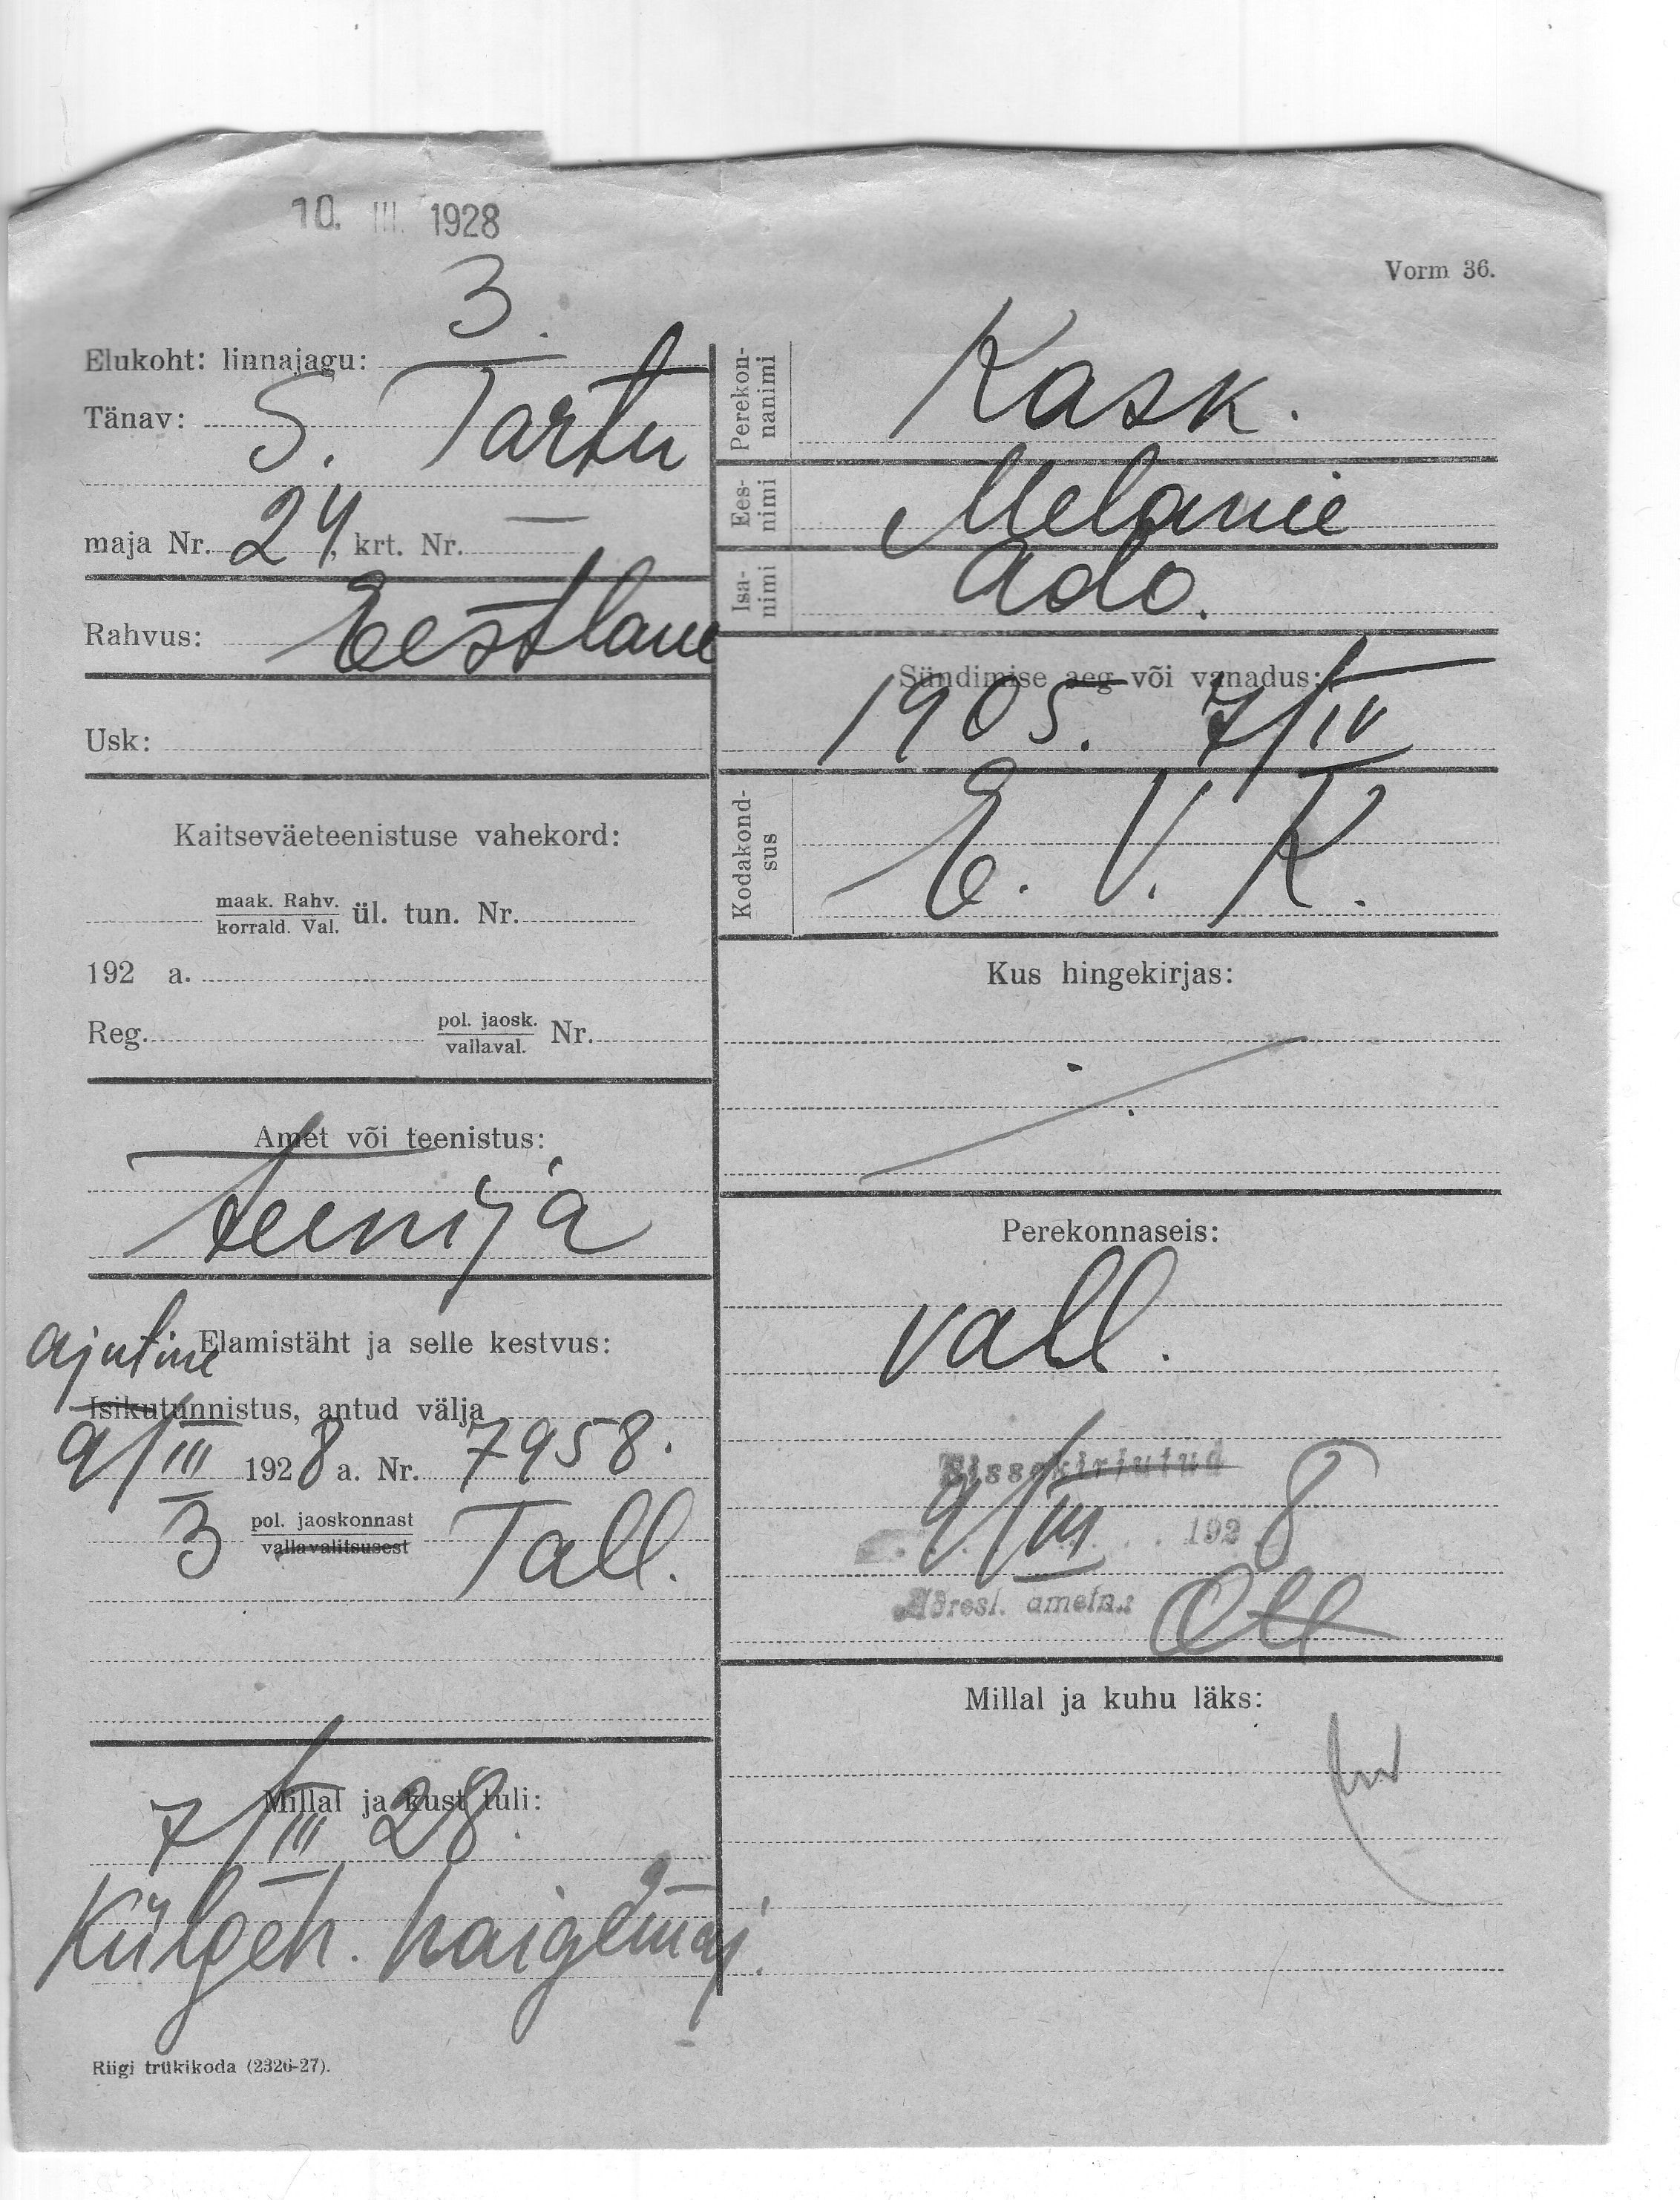 10. III. 1928
Vorm 36.
3.
Elukoht: linnajagu:
Tänav: S. Tartu
maja Nr. 24, krt. Nr. —
Rahvus: Eestlane
Usk:
Kaitseväeteenistuse vahekord:
maak. Rahv.
korrald. Val. ül. tun. Nr.
192 a.
Reg. pol. jaosk.
vallaval. Nr.
Amet või teenistus:
teenija
Elamistäht ja selle kestvus:
ajutine
Isikutunnistus, antud välja
9/III 1928 a. Nr. 7958.
3 pol. jaoskonnast
vallavalitsusest Tall.
Millal ja kust tuli:
7/III 28.
Külgeh. haigemaj.
Riigi trükikoda (2326-27).
Perekon-
nanimi Kask.
Ees-
nimi Melanie
Isa-
nimi Ado.
Sündimise aeg või vanadus:
1905. 7/IV
Kodakond-
sus E. V. K.
Kus hingekirjas:
Perekonnaseis:
vall.
Sissekirjutud
9/III 1928
Adresl. ametn.:
Millal ja kuhu läks: